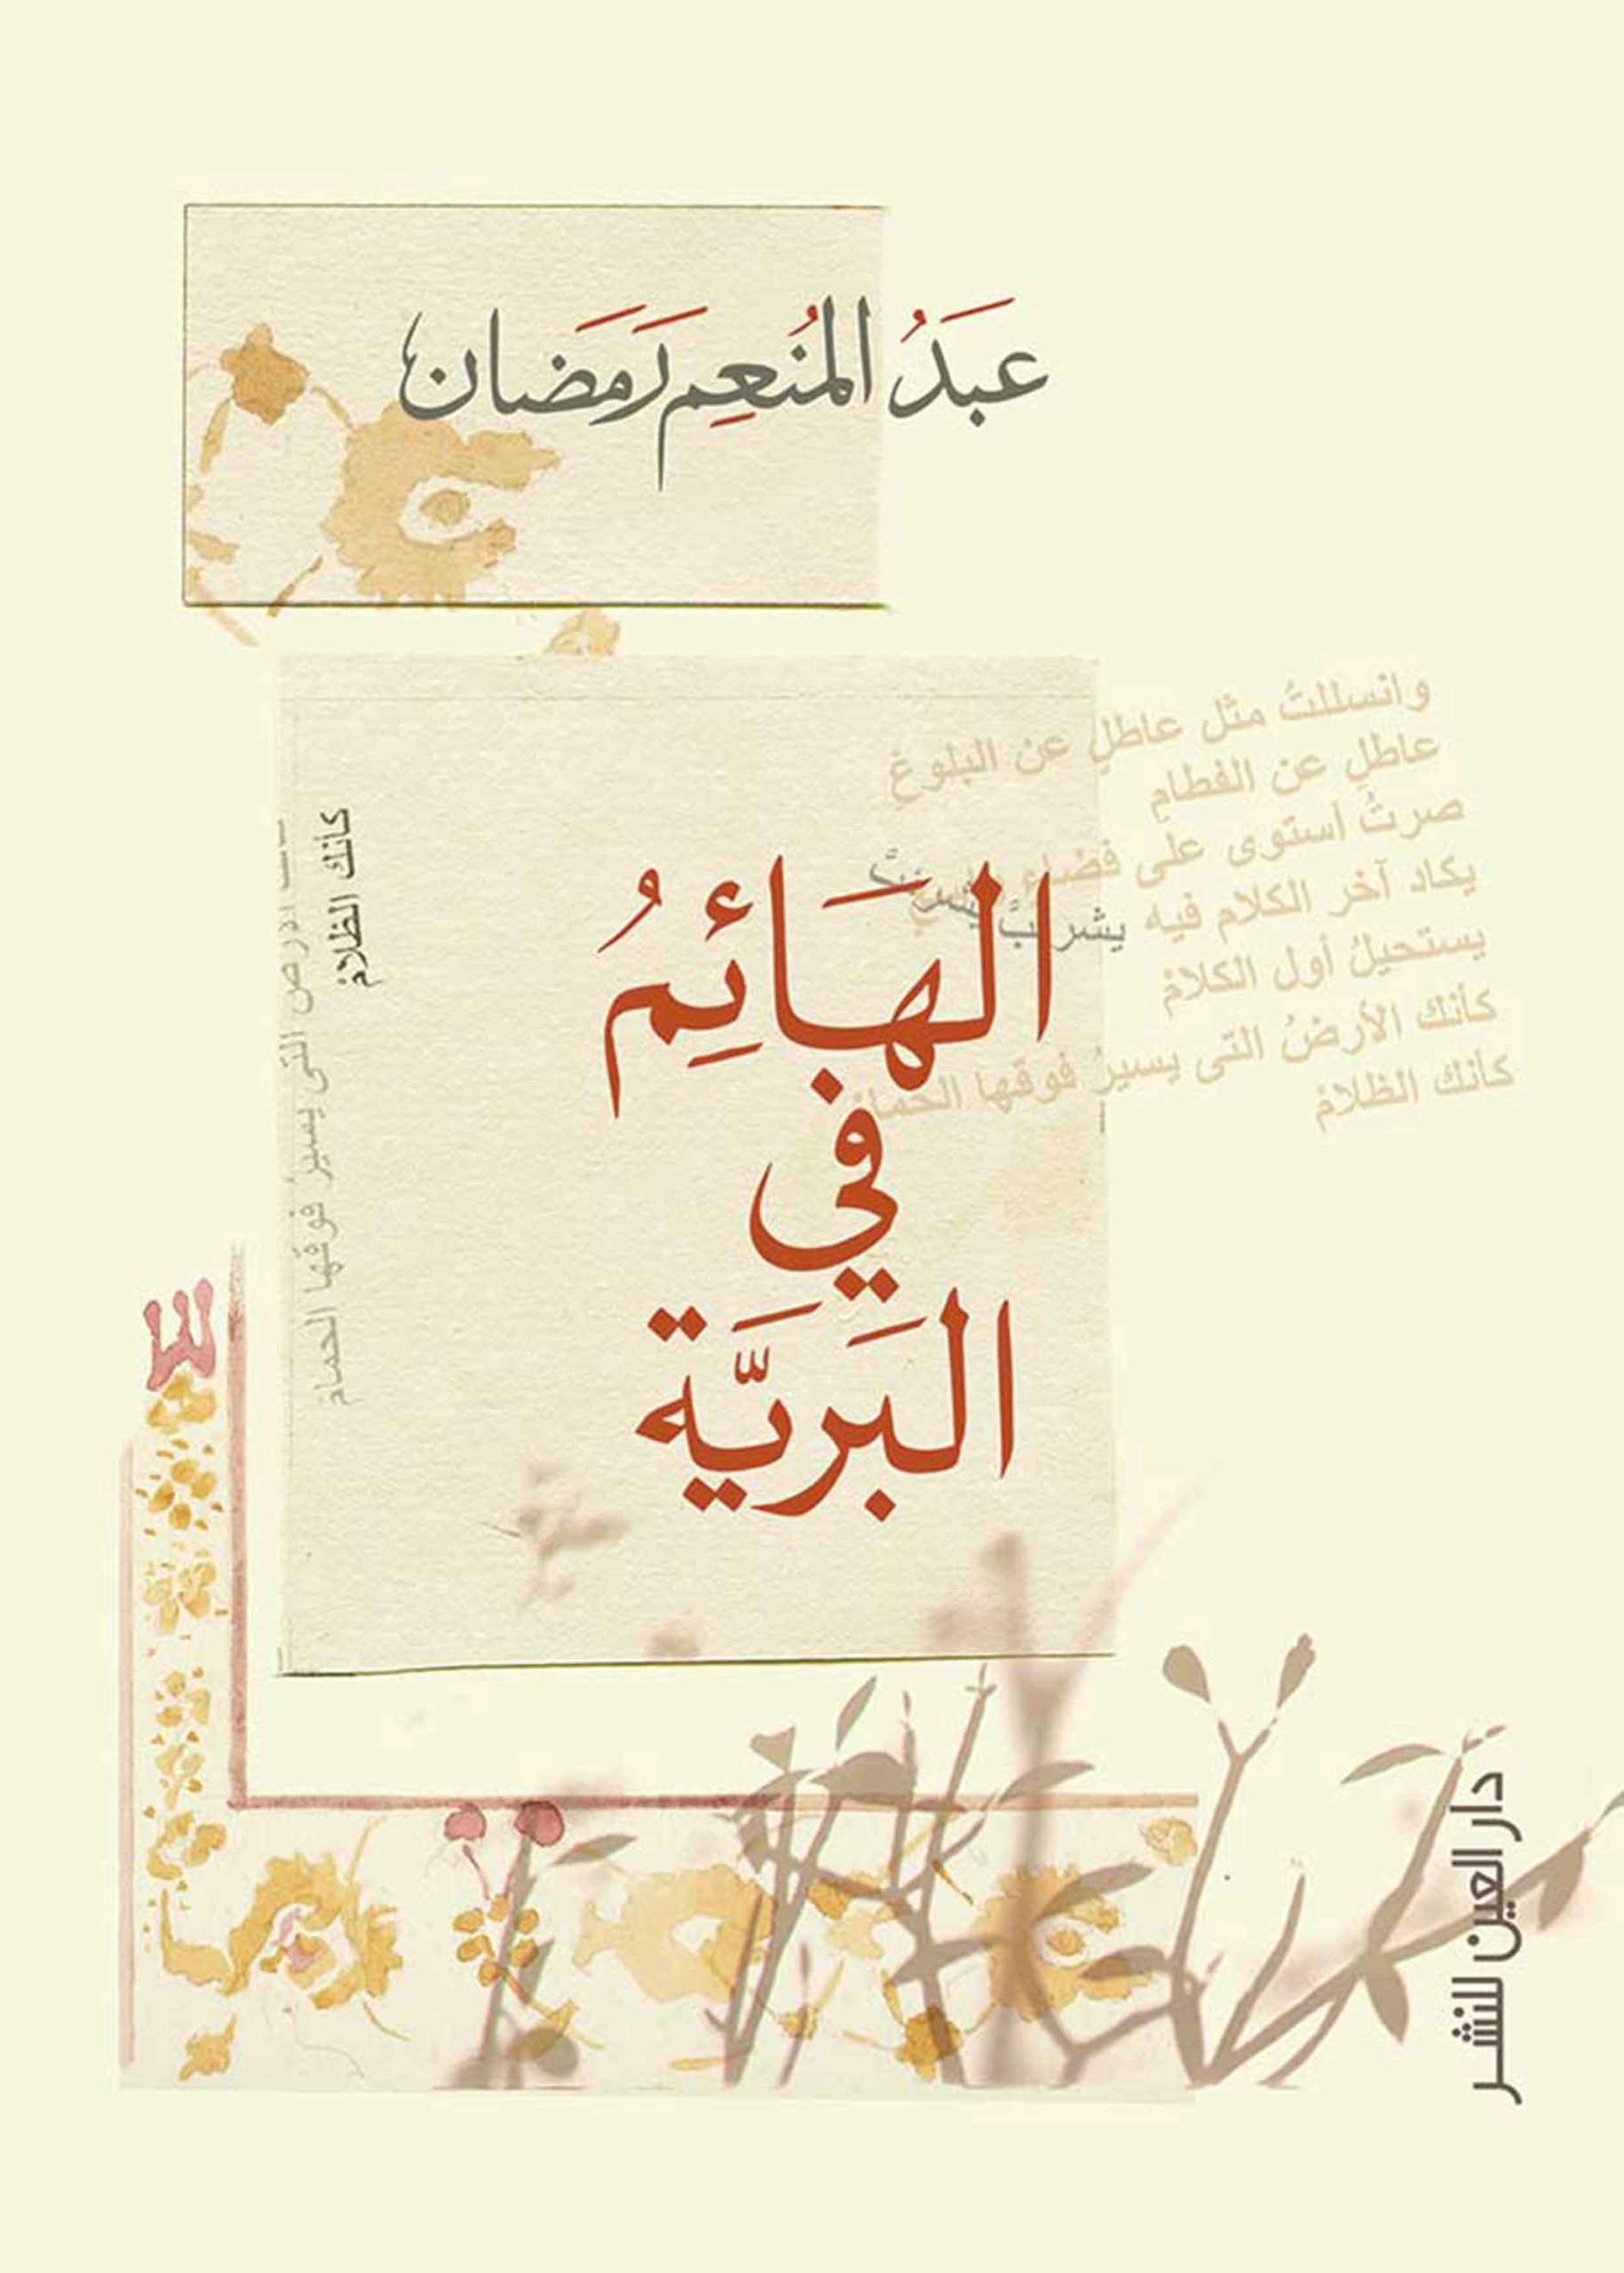 عبَدُ المنُعِم رَمَضان
وانسللتُ مثل عاطلٍ عن البلوغِ
عاطلٍ عن الفطامِ
صرتُ أستوى على فضاء
يكاد آخر الكلام فيه يشرئبُّ
يستحيلُ أول الكلامْ
كأنك الأرضُ التى يسيرُ فوقها الحمامْ
كأنك الظلامْ
الهَائِمُ
في
البَريَّة
كأنك الظلامْ
الأرض التى يسيرُ فوقها الحمامْ
دار العين للنشر